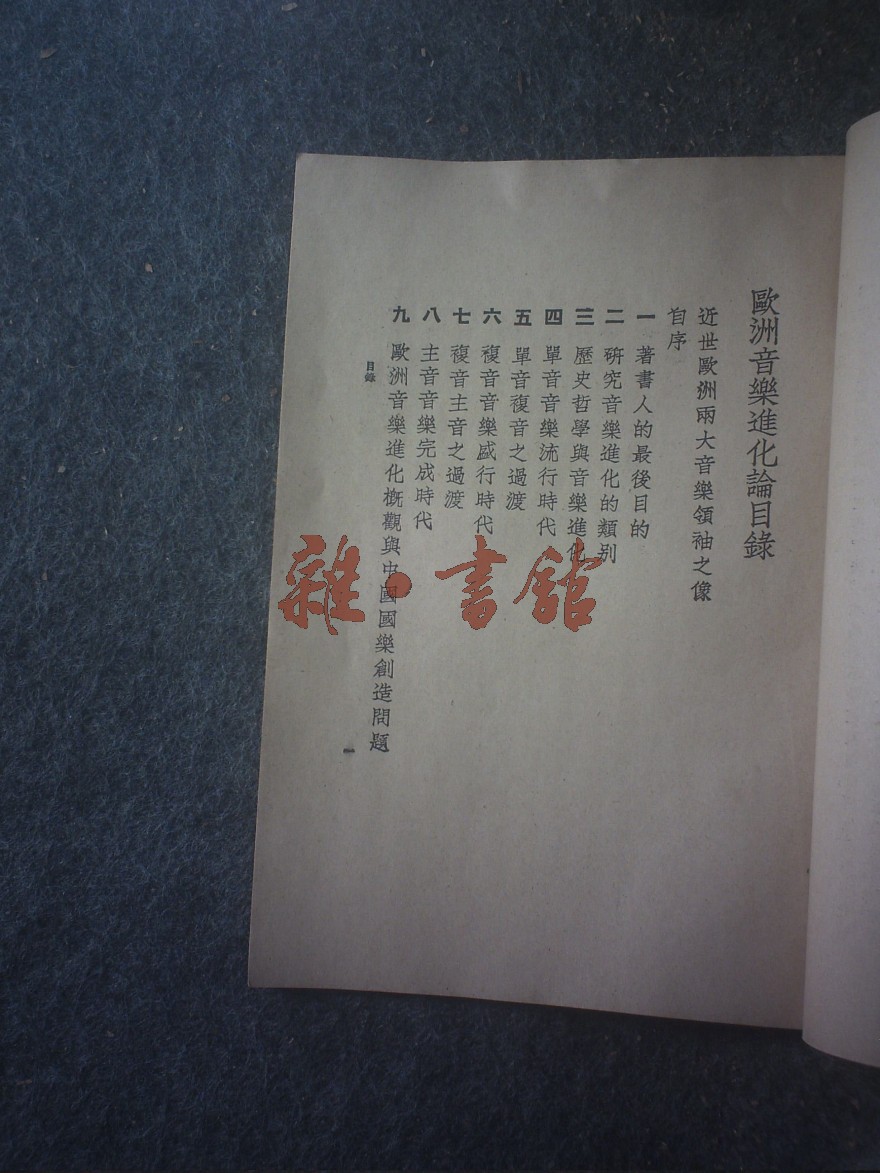 歐洲音樂進化論目錄
近世歐洲兩大音樂領袖之像
自序
一 著書人的最後目的
二 研究音樂進化的類别
三 歷史哲學與音樂進化
四 單音音樂流行時代
五 單音複音之過渡
六 複音音樂盛行時代
七 複音主音之過渡
八 主音音樂完成時代
九 歐洲音樂進化概觀與中國國樂創造問題
目錄
一
雜·書館